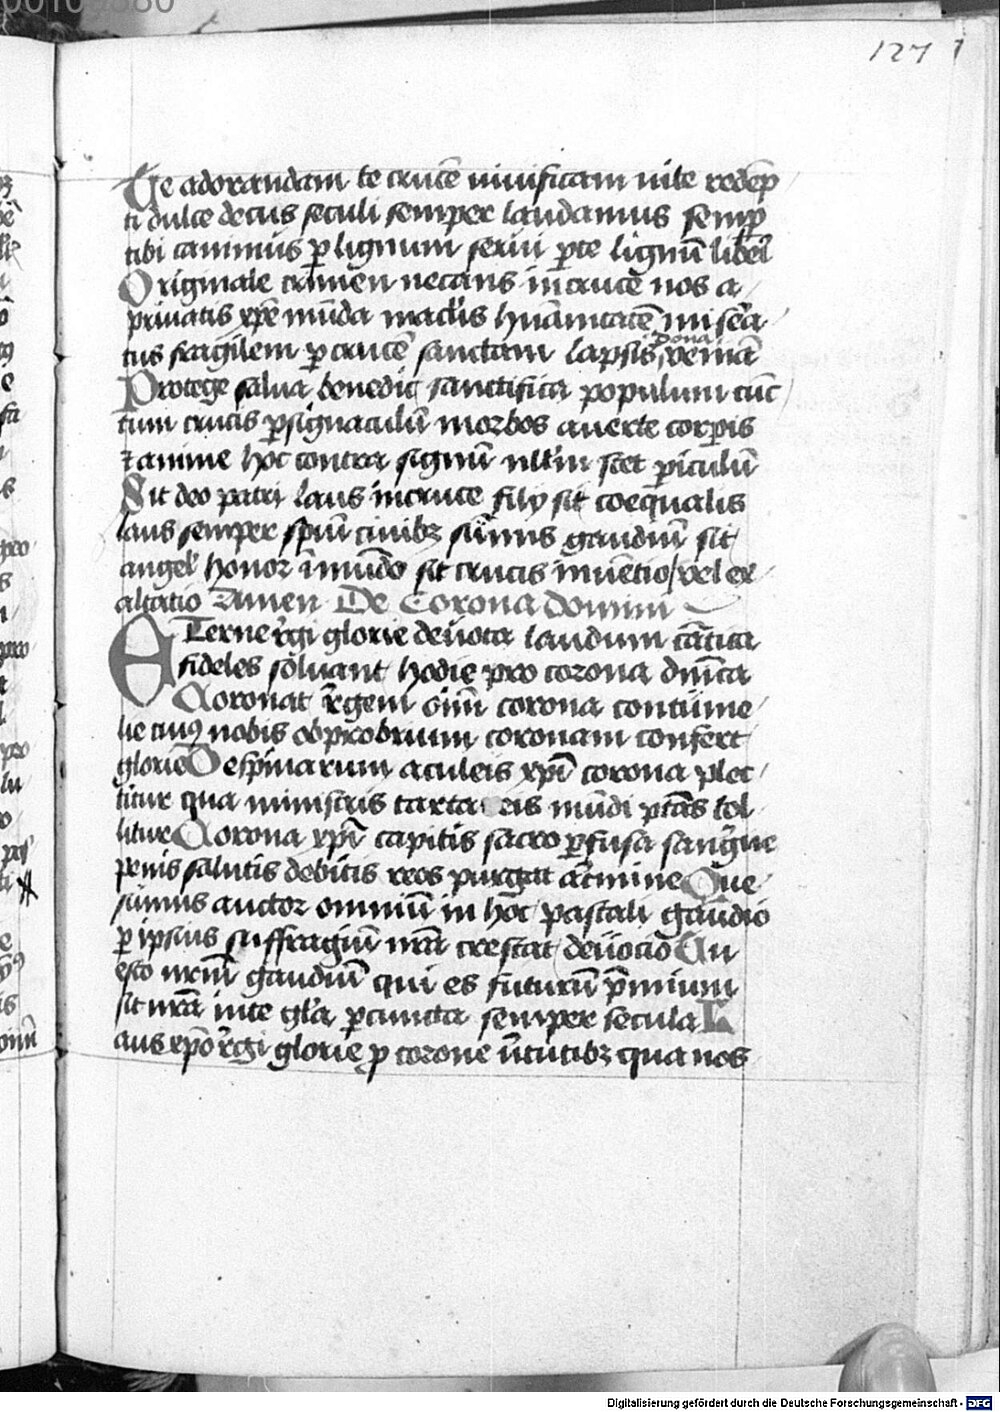 127
Te adorandam te crucē uiuificam uite redēp
ti dulce decus seculi semper laudamus semꝑ
tibi canimus ꝑ lignum serui ꝑ te lignū liberi
Originale crimen necans in cruce nos a
priuatis xp̄e mūda maclīs huānitatē miserā
tus fragilem ꝑ crucē sanctam lapsis dona veniā
Protege salua benedic sanctifica populum cūc
tum crucis ꝑ signaculū morbos auerte corꝑis
⁊ anime hoc contra signū nllm̄ stet ꝑiculū
Sit deo patri laus in cruce filij sit coequalis
laus semper spūi ciuibꝫ sūmis gaudiū sit
angelꝭ honor ī mūdo sit crucis inuētio / vel ex
altatio Amen De Corona domini
ETerne rēgi glorie deuota laudum cātica
fideles soluant hodie pro corona dnīca
Coronat rēgem oīm corona contume
lie cuiꝰ nobis obprobrium coronam confert
glorie De spinarum aculeis xpī corona plec
titur qua ministris tartareis mūdi ptās tol
litur Corona xpī capitis sacro ꝑfusa sanguīe
penis salutis debitis reos purgat a crīmine Que
sumus auctor omniū in hoc pascali gaudio
ꝑ ipsius suffragiū nrā crescat deuocio Tu
esto nrm̄ gaudiū qui es futurū p̄mium
sit nrā in te glā ꝑ cuncta semper secula L
aus xpō rēgi glorie ꝓ corone v̄tutibꝫ qua nos
Digitalisierung gefördert durch die Deutsche Forschungsgemeinschaft - DFG